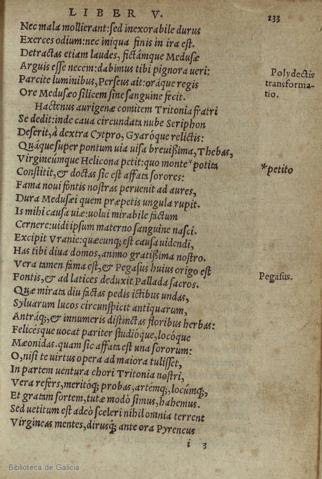 LIBER V. 133
Nec mala mollierant: sed inexorabile durus
Exerces odium: nec iniqua finis in ira est.
Detractas etiam laudes, fictámque Medusæ
Arguis esse necem: dabimus tibi pignora ueri:
Parcite luminibus, Perseus ait: oráque regis
Ore Medusæo silicem sine sanguine fecit.
Polydectis
transforma-
tio.
Hactenus aurigenæ comitem Tritonia fratri
Se dedit: inde caua circundata nube Seriphon
Deserit, à dextra Cytpro, Gyaróque relictis:
Quáque super pontum uia uisa breuissima, Thebas,
Virgineumque Helicona petit: quo monte *potita
*petito
Constitit, & doctas sic est affata sorores:
Fama noui fontis nostras peruenit ad aures,
Dura Medusæi quem præpetis ungula rupit.
Is mihi causa uiæ: uolui mirabile factum
Cernere: uidi ipsum materno sanguine nasci.
Excipit Vranie: quæcunq; est causa uidendi,
Has tibi diua domos, animo gratissima nostro.
Vera tamen fama est, & Pegasus huius origo est
Pegasus.
Fontis, & ad latices deduxit Pallada sacros.
Quæ mirata diu factas pedis ictibus undas,
Syluarum lucos circunspicit antiquarum,
Antráq;, & innumeris distinctas floribus herbas:
Felicésque uocat pariter studióque, locóque
Mæonidas. quam sic affata est una sororum:
O, nisi te uirtus opera ad maiora tulisset,
In partem uentura chori Tritonia nostri,
Vera refers, meritóq; probas, artémq;, locúmq;,
Et gratam sortem, tutæ modò simus, habemus.
Sed uetitum est adeò sceleri nihil omnia terrent
Virgineas mentes, dirusq; ante ora Pyreneus
i 3
Biblioteca de Galicia